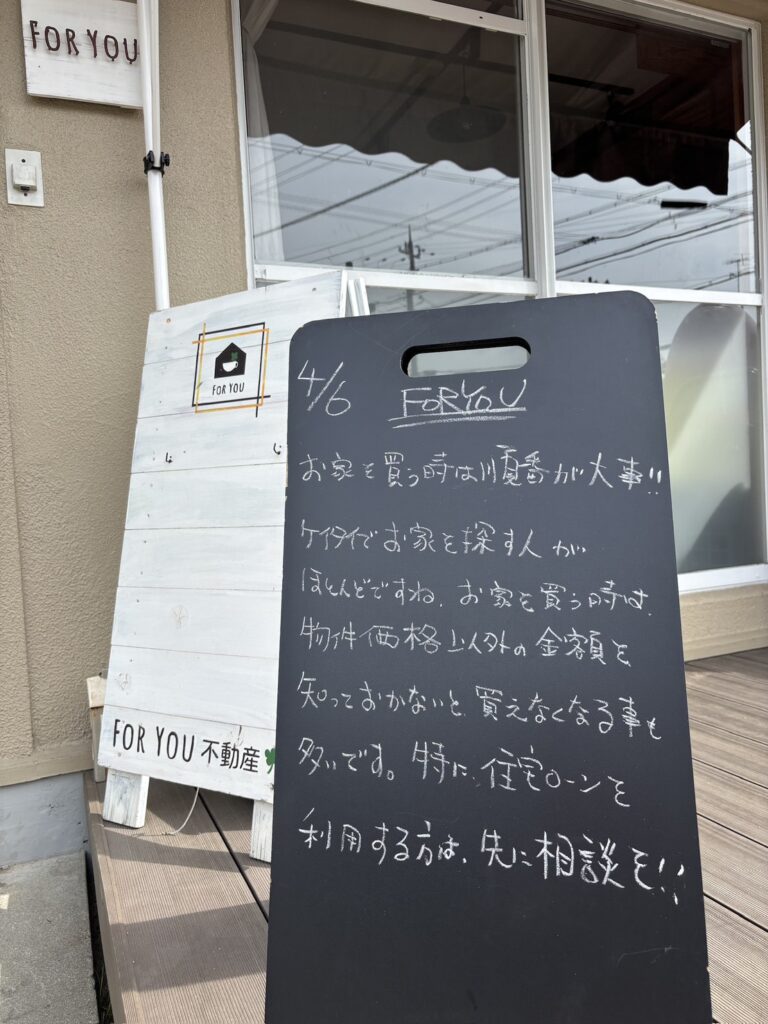 FOR YOU
FOR YOU
FOR YOU 不動産
4/6 FOR YOU
お家を買う時は順番が大事!!
ケイタイでお家を探す人が
ほとんどですね、お家を買う時は、
物件価格以外の金額を
知っておかないと、買えなくなる事も
多いです。特に、住宅ローンを
利用する方は、先に相談を!!